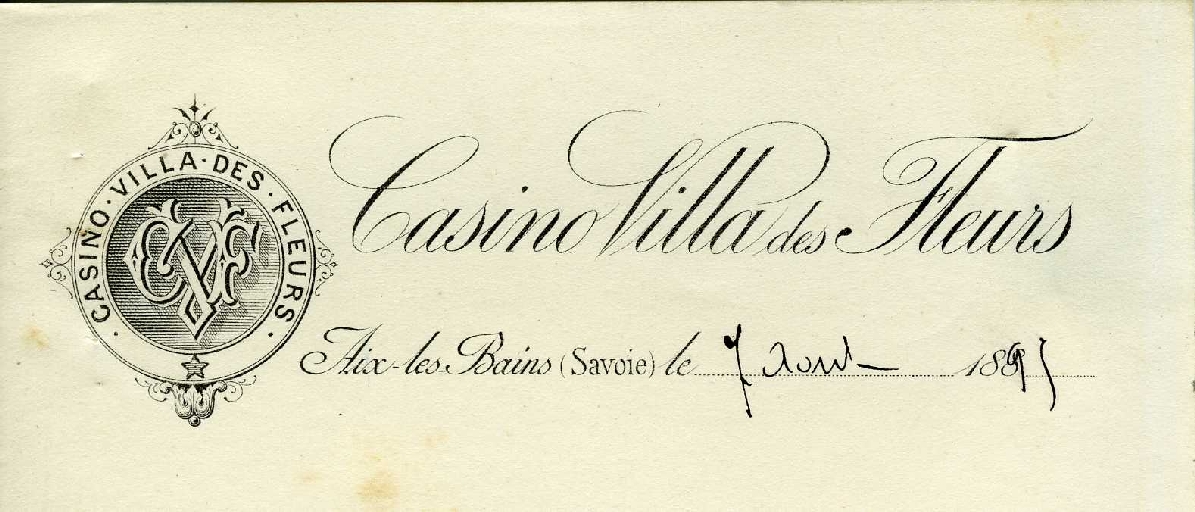 CASINO · VILLA · DES · FLEURS ·
CVF
Casino Villa des Fleurs
Aix-les-Bains (Savoie) le 7 Aout 1895